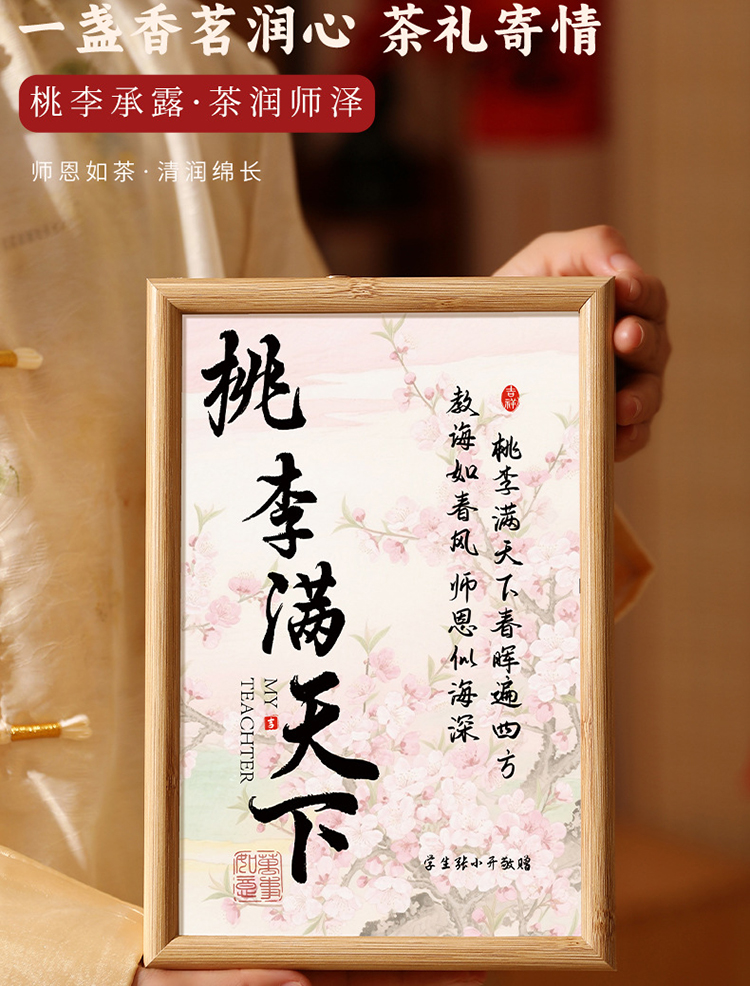 一盏香茗润心 茶礼寄情
桃李承露·茶润师泽
师恩如茶·清润绵长
桃李满天下
MY
TEACHTER
李
吉祥
桃李满天下春晖遍四方
教诲如春风师恩似海深
学生张小开敬赠
萬事
如意